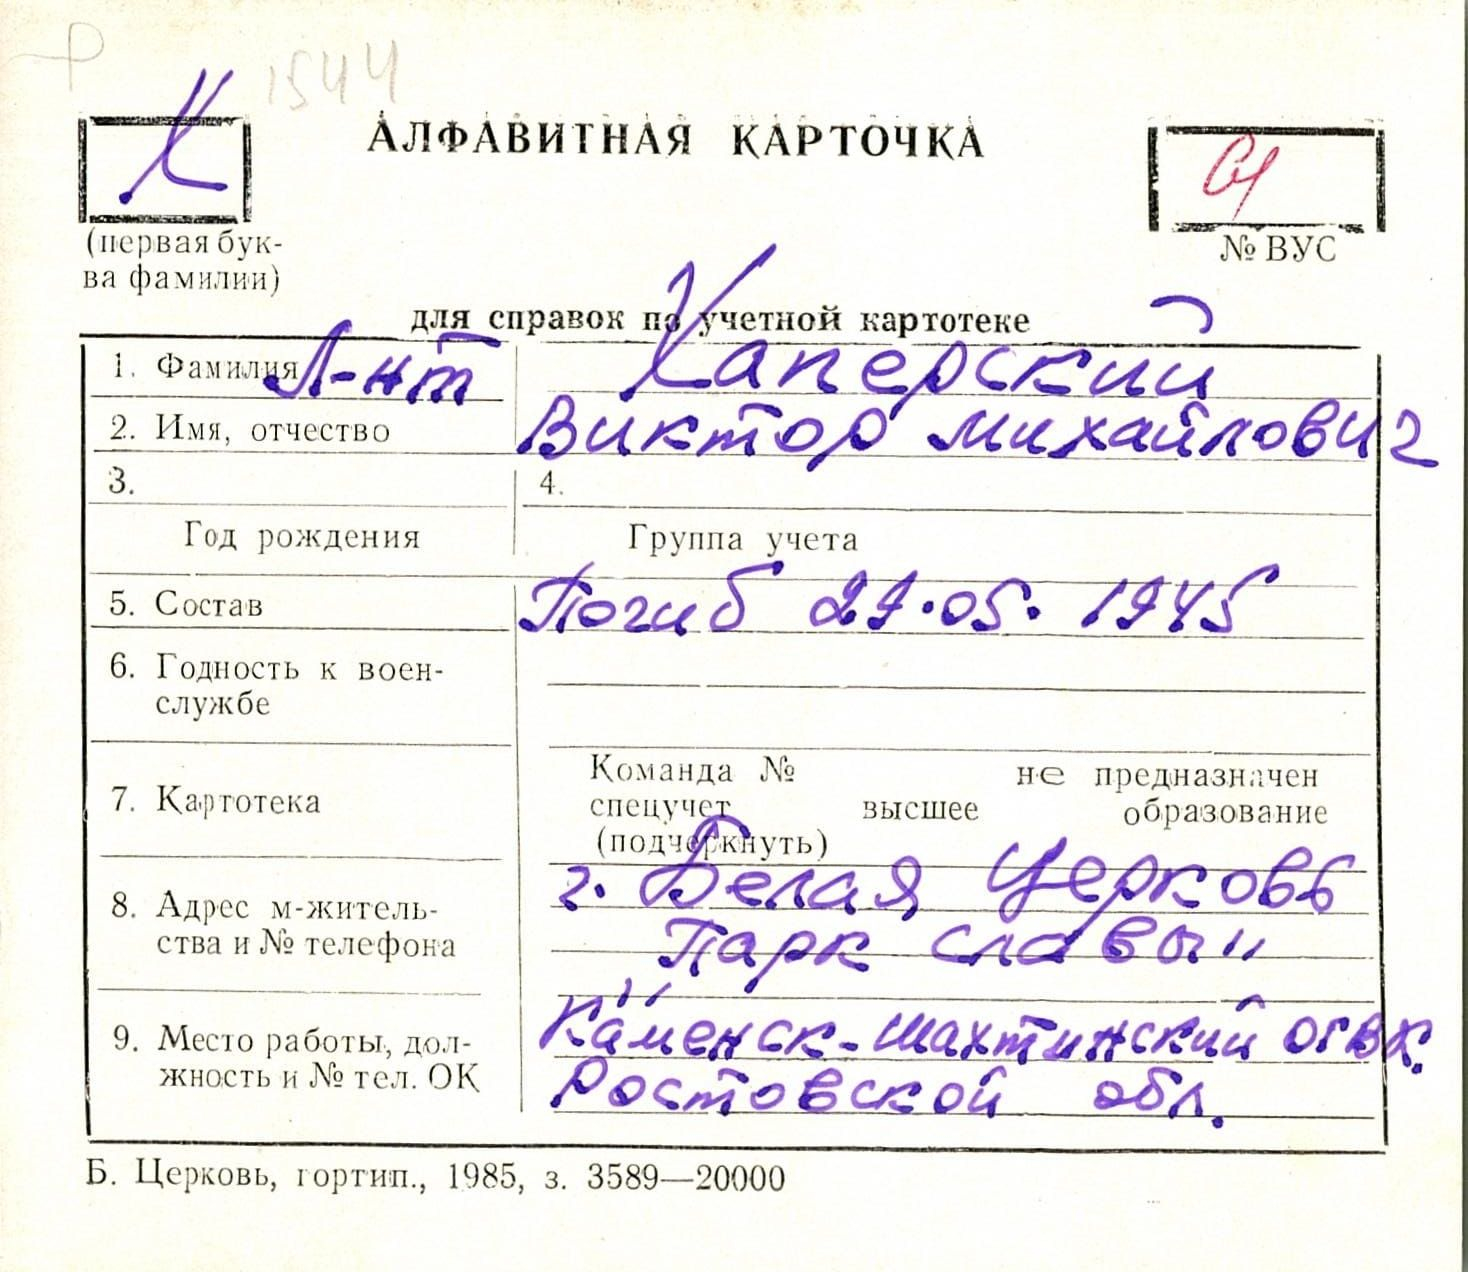 1544
Х
АЛФАВИТНАЯ КАРТОЧКА
(первая бук-
ва фамилии)
№ ВУС
для справок по учетной картотеке
1. Фамилия Л-нт Хаперский
2. Имя, отчество Виктор Михайлович
3. 4.
Год рождения Группа учета
5. Состав Погиб 29.05.1945
6. Годность к воен-
службе
Команда № не предназначен
7. Картотека спецучет высшее образование
(подчеркнуть)
г. Белая Церковь
8. Адрес м-житель-
ства и № телефона Парк славы"
Каменск-Шахтинский ОГВК.
9. Место работы, дол-
жность и № тел. ОК Ростовской обл.
Б. Церковь, гортип., 1985, з. 3589—20000